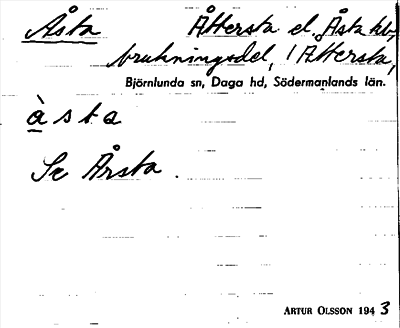 Åsta Åttersta el. Åsta
brukningsdel, i Åttersta,
Björnlunda sn, Daga hd, Södermanlands län.
àsta
Se Årsta.
ARTUR OLSSON 1943